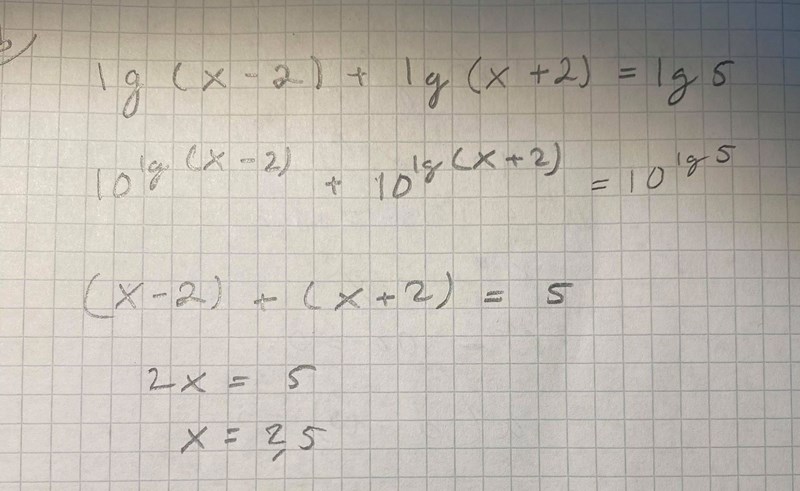 b)
lg (x - 2) + lg (x + 2) = lg 5
10^lg (x - 2) + 10^lg (x + 2) = 10^lg 5
(x - 2) + (x + 2) = 5
2x = 5
x = 2,5